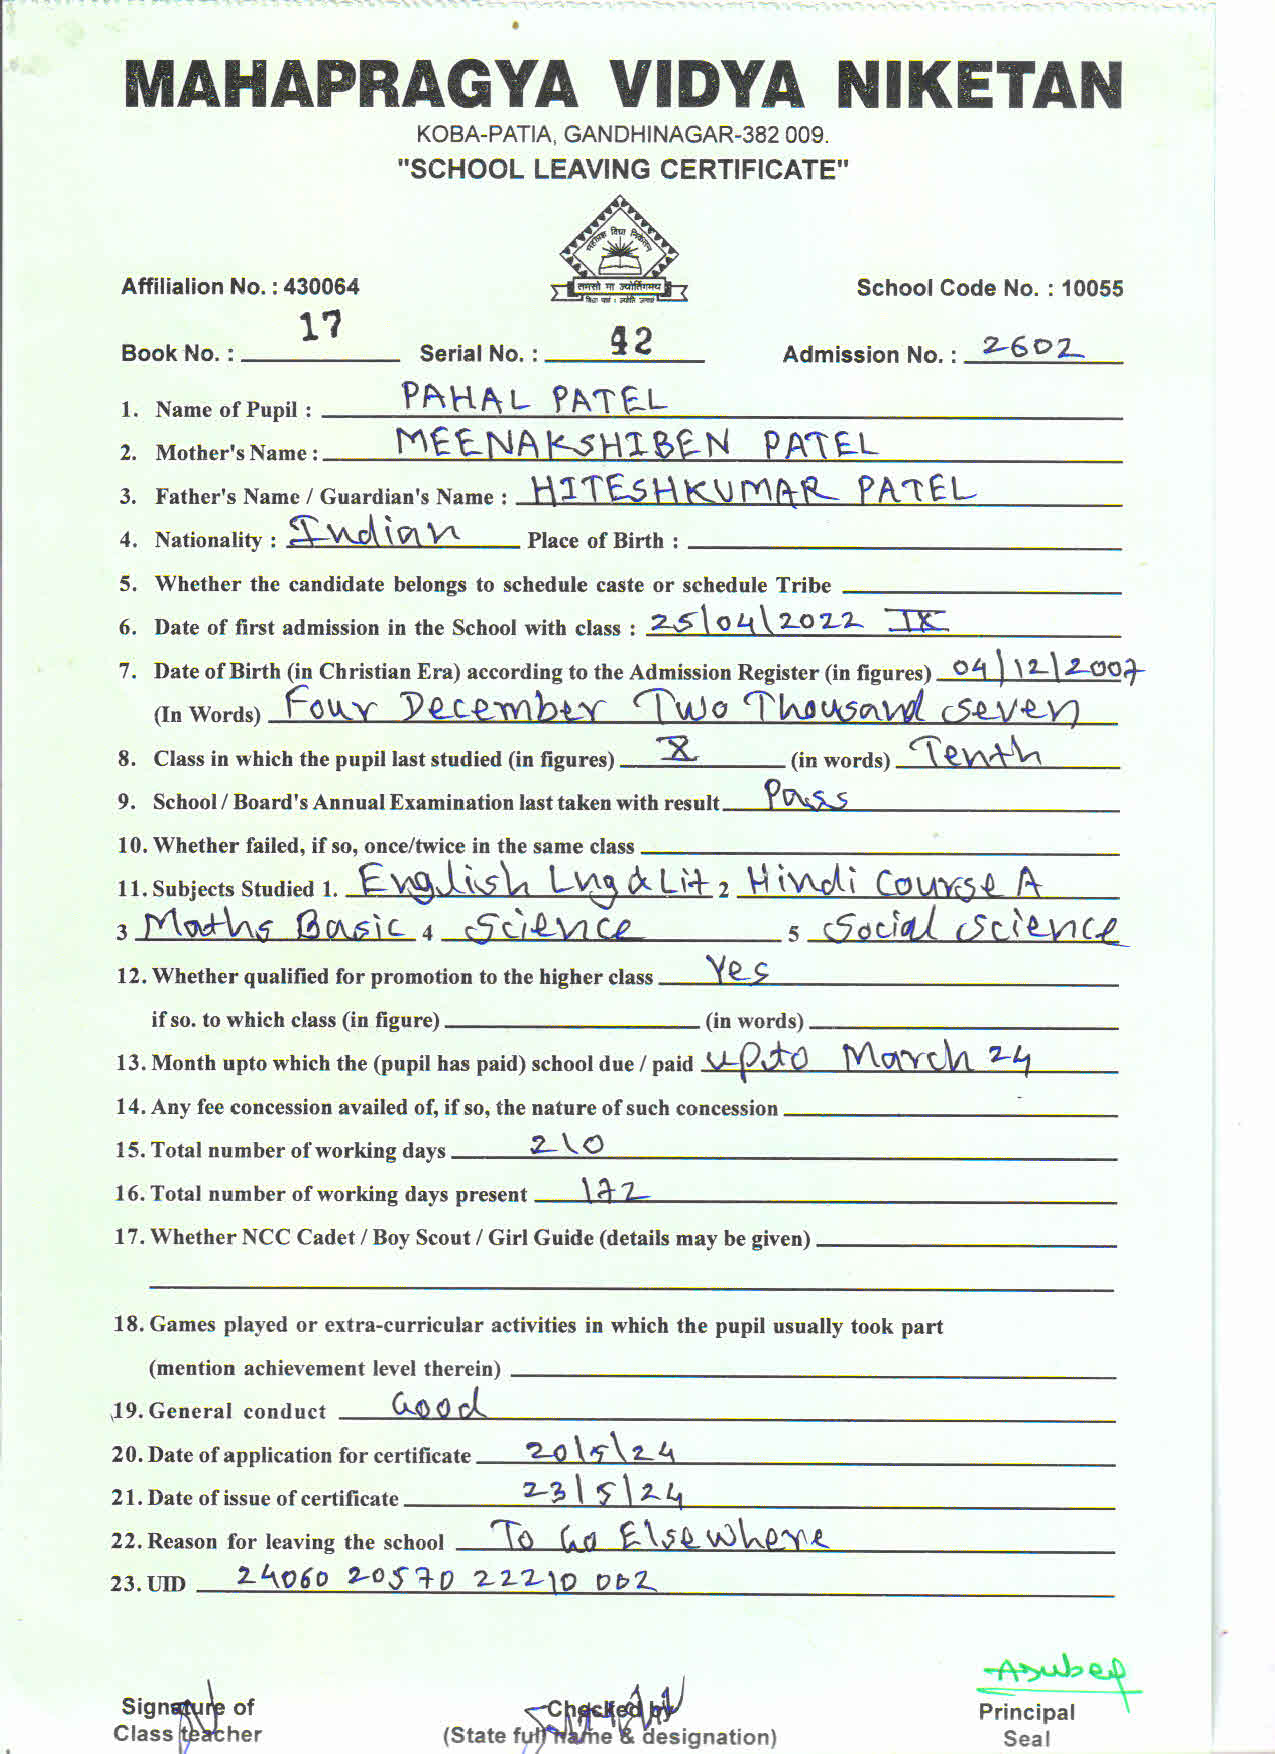 MAHAPRAGYA VIDYA NIKETAN
KOBA-PATIA, GANDHINAGAR-382 009.
"SCHOOL LEAVING CERTIFICATE"
महाप्रज्ञ विद्या निकेतन
तमसो मा ज्योतिर्गमय
Affilialion No. : 430064 School Code No. : 10055
Book No. : 17 Serial No. : 42 Admission No. : 2602
1. Name of Pupil : PAHAL PATEL
2. Mother's Name : MEENAKSHIBEN PATEL
3. Father's Name / Guardian's Name : HITESHKUMAR PATEL
4. Nationality : Indian Place of Birth :
5. Whether the candidate belongs to schedule caste or schedule Tribe
6. Date of first admission in the School with class : 25/04/2022 IX
7. Date of Birth (in Christian Era) according to the Admission Register (in figures) 04/12/2007
(In Words) Four December Two Thousand seven
8. Class in which the pupil last studied (in figures) X (in words) Tenth
9. School / Board's Annual Examination last taken with result Pass
10. Whether failed, if so, once/twice in the same class
11. Subjects Studied 1. English Lng & Lit 2 Hindi Course A
3 Maths Basic 4 Science 5 Social Science
12. Whether qualified for promotion to the higher class Yes
if so. to which class (in figure) (in words)
13. Month upto which the (pupil has paid) school due / paid upto March 24
14. Any fee concession availed of, if so, the nature of such concession
15. Total number of working days 210
16. Total number of working days present 172
17. Whether NCC Cadet / Boy Scout / Girl Guide (details may be given)
18. Games played or extra-curricular activities in which the pupil usually took part
(mention achievement level therein)
19. General conduct Good
20. Date of application for certificate 20/5/24
21. Date of issue of certificate 23/5/24
22. Reason for leaving the school To Go Elsewhere
23. UID 24060 20570 22210 002
Signature of Checked by Principal
Class teacher (State full name & designation) Seal